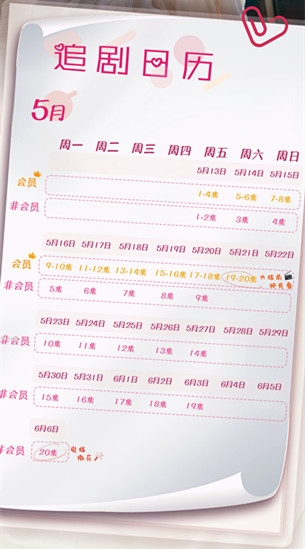 追剧日历
5月
周一 周二 周三 周四 周五 周六 周日
5月13日 5月14日 5月15日
会员 1-4集 5-6集 7-8集
非会员 1-2集 3集 4集
5月16日 5月17日 5月18日 5月19日 5月20日 5月21日 5月22日
会员 9-10集 11-12集 13-14集 15-16集 17-18集 19-20集 大结局
非会员 5集 6集 7集 8集 9集
5月23日 5月24日 5月25日 5月26日 5月27日 5月28日 5月29日
非会员 10集 11集 12集 13集 14集
5月30日 5月31日 6月1日 6月2日 6月3日 6月4日 6月5日
非会员 15集 16集 17集 18集 19集
6月6日
非会员 20集 完结
撒花